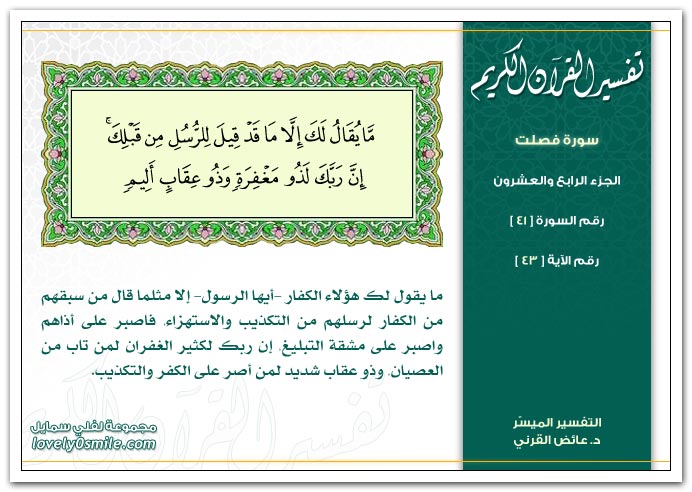 تفسير القرآن الكريم
سورة فصلت
الجزء الرابع والعشرون
رقم السورة [ ٤١ ]
رقم الآية [ ٤٣ ]
مَّا يُقَالُ لَكَ إِلَّا مَا قَدْ قِيلَ لِلرُّسُلِ مِن قَبْلِكَ ۚ
إِنَّ رَبَّكَ لَذُو مَغْفِرَةٍ وَذُو عِقَابٍ أَلِيمٍ
ما يقول لك هؤلاء الكفار -أيها الرسول- إلا مثلما قال من سبقهم
من الكفار لرسلهم من التكذيب والاستهزاء، فاصبر على أذاهم
واصبر على مشقة التبليغ، إن ربك لكثير الغفران لمن تاب من
العصيان، وذو عقاب شديد لمن أصر على الكفر والتكذيب.
التفسير الميسّر
د. عائض القرني
مجموعة لفلي سمايل
lovely0smile.com
تفسير القرآن الكريم